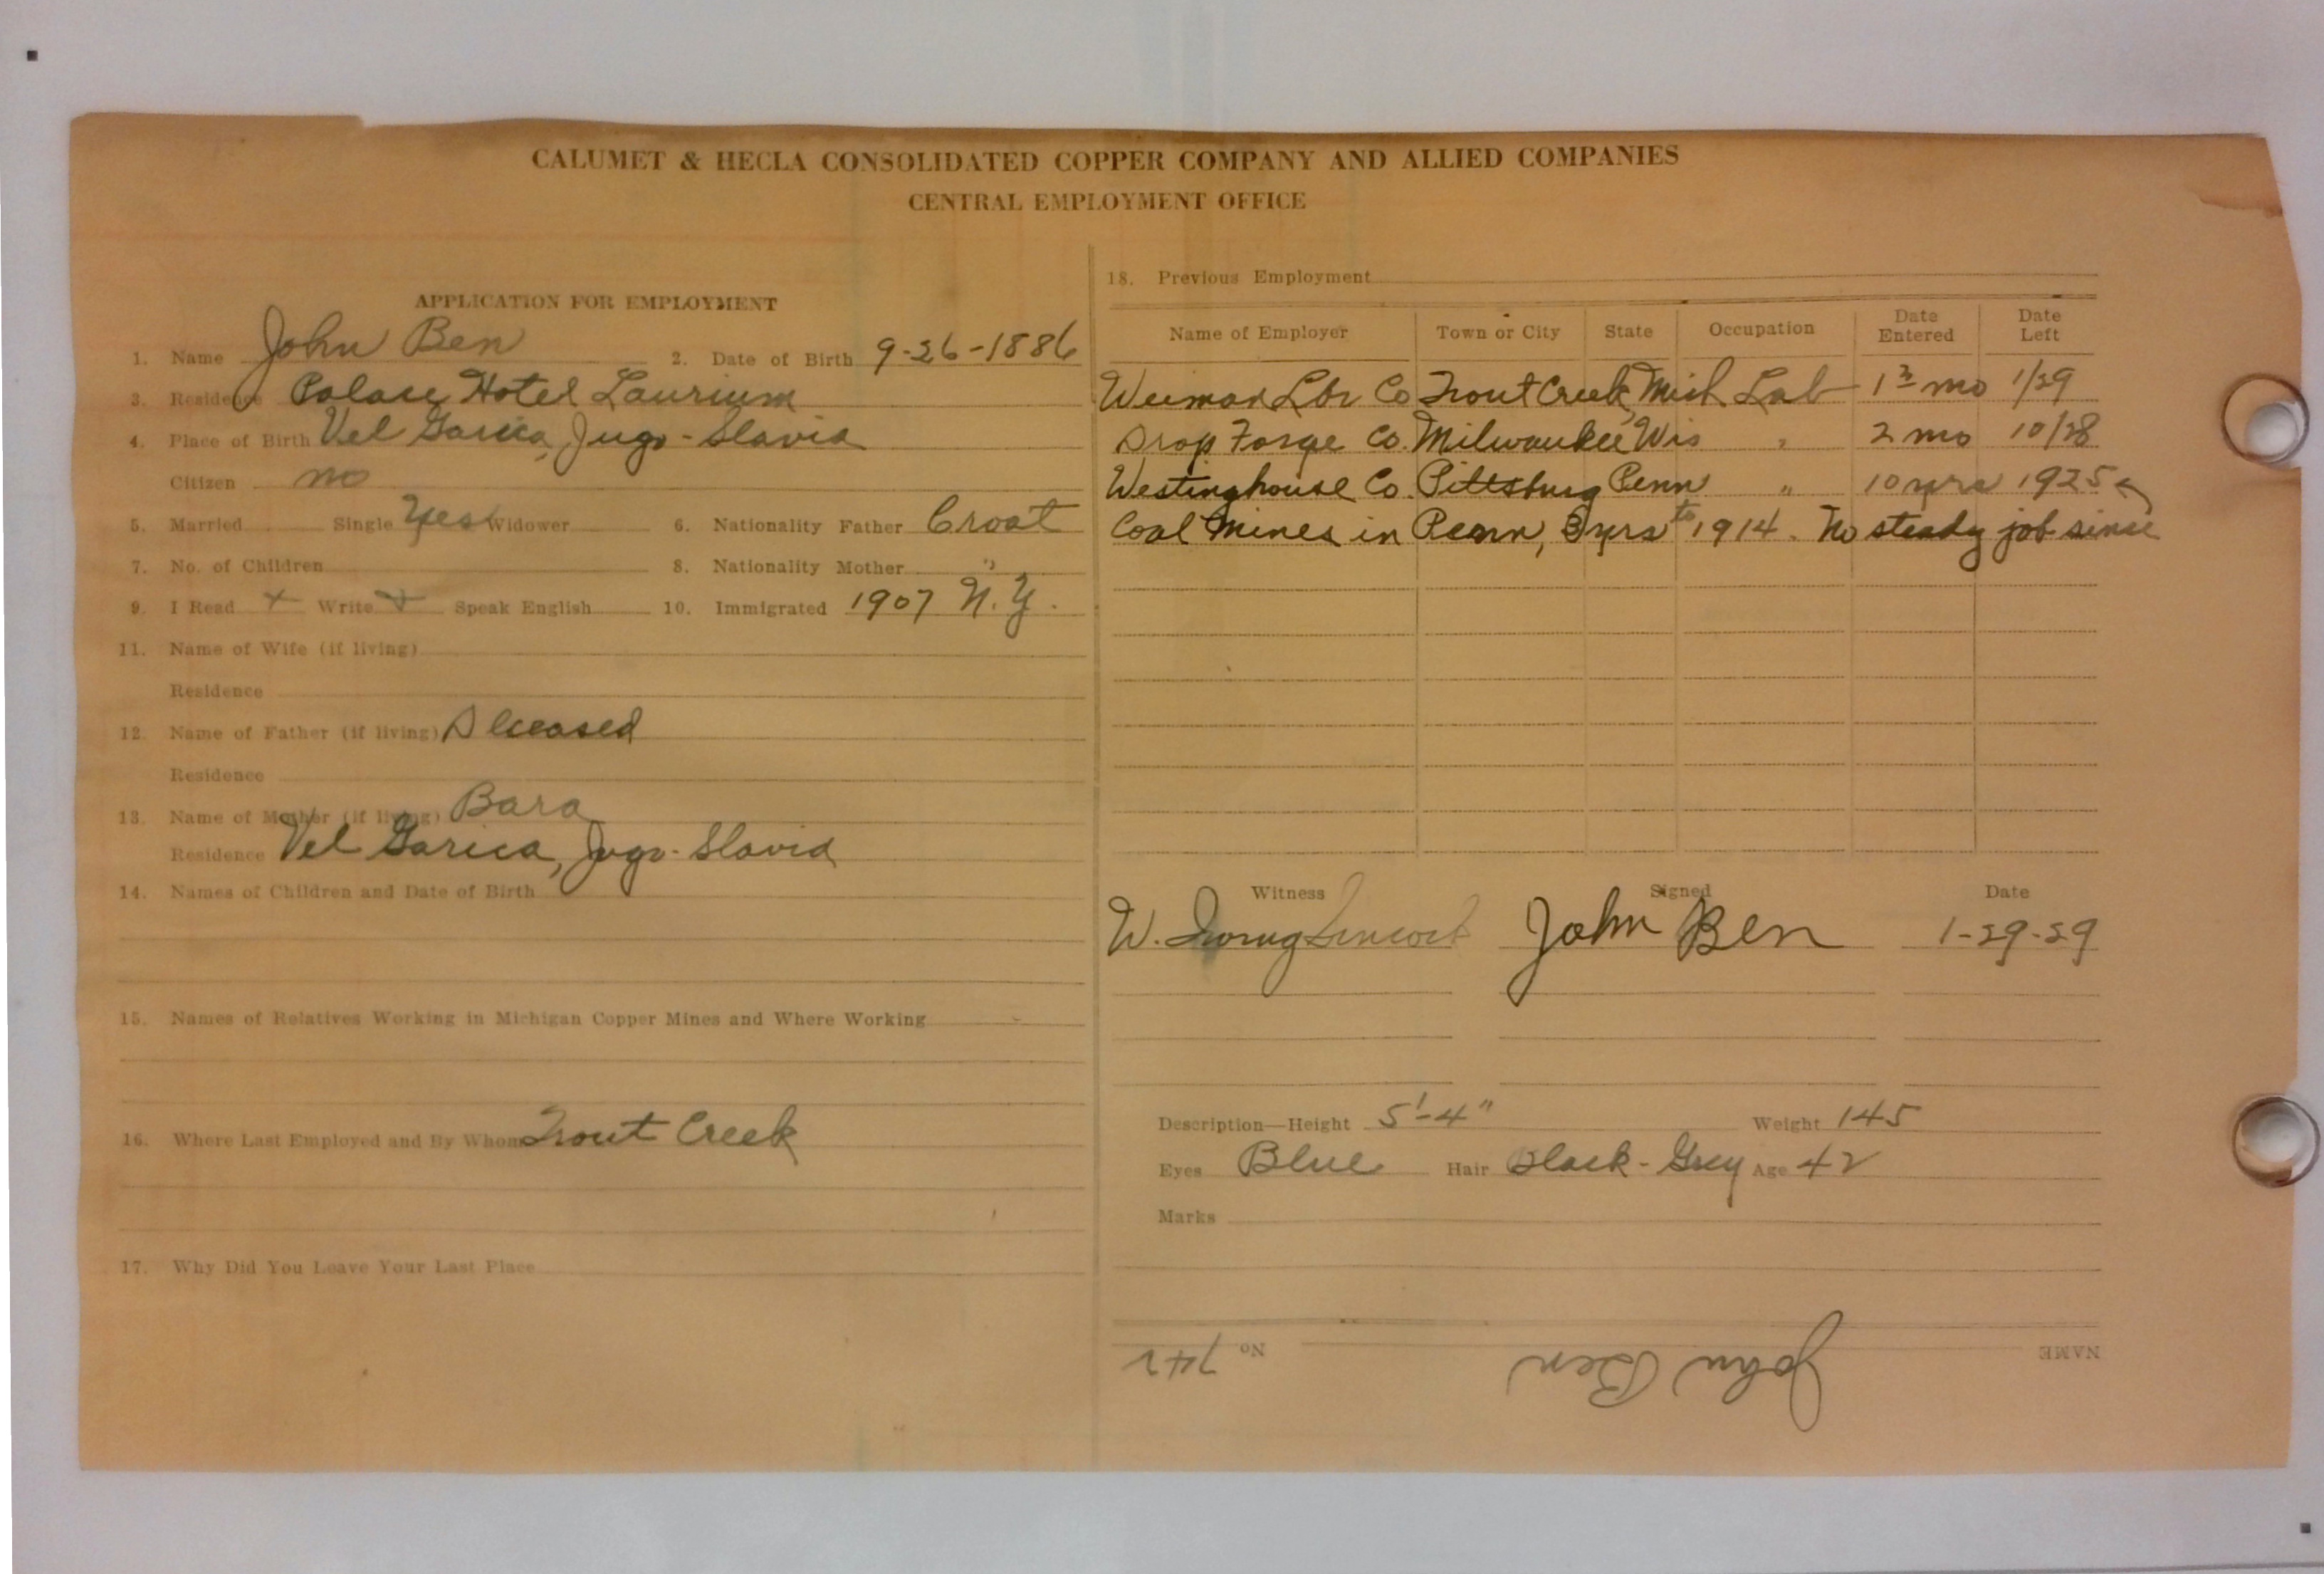 CALUMET & HECLA CONSOLIDATED COPPER COMPANY AND ALLIED COMPANIES
CENTRAL EMPLOYMENT OFFICE
APPLICATION FOR EMPLOYMENT
1. Name John Ben 2. Date of Birth 9-26-1886
3. Residence Palace Hotel Laurium
4. Place of Birth Vel Gorica, Jugo-Slavia
Citizen no
5. Married Single Yes Widower 6. Nationality Father Croat
7. No. of Children 8. Nationality Mother "
9. I Read + Write + Speak English 10. Immigrated 1907 N.Y.
11. Name of Wife (if living)
Residence
12. Name of Father (if living) Deceased
Residence
13. Name of Mother (if living) Bara
Residence Vel Gorica, Jugo-Slavia
14. Names of Children and Date of Birth
15. Names of Relatives Working in Michigan Copper Mines and Where Working
16. Where Last Employed and By Whom Trout Creek
17. Why Did You Leave Your Last Place
18. Previous Employment
Name of Employer Town or City State Occupation Date Entered Date Left
Lbr Co Trout Creek, Mich Lab mo 1/29
Drop Forge Co. Milwaukee, Wis " 2 mo 10/28
Westinghouse Co. Pittsburg Penn " 10 yrs 1925
Coal Mines in Penn, 3 yrs to 1914. No steady job since
Witness Signed Date
W. Irving John Ben 1-29-29
Description—Height 5'-4" Weight 145
Eyes Blue Hair Black-Grey Age 42
Marks
NAME John Ben No 742